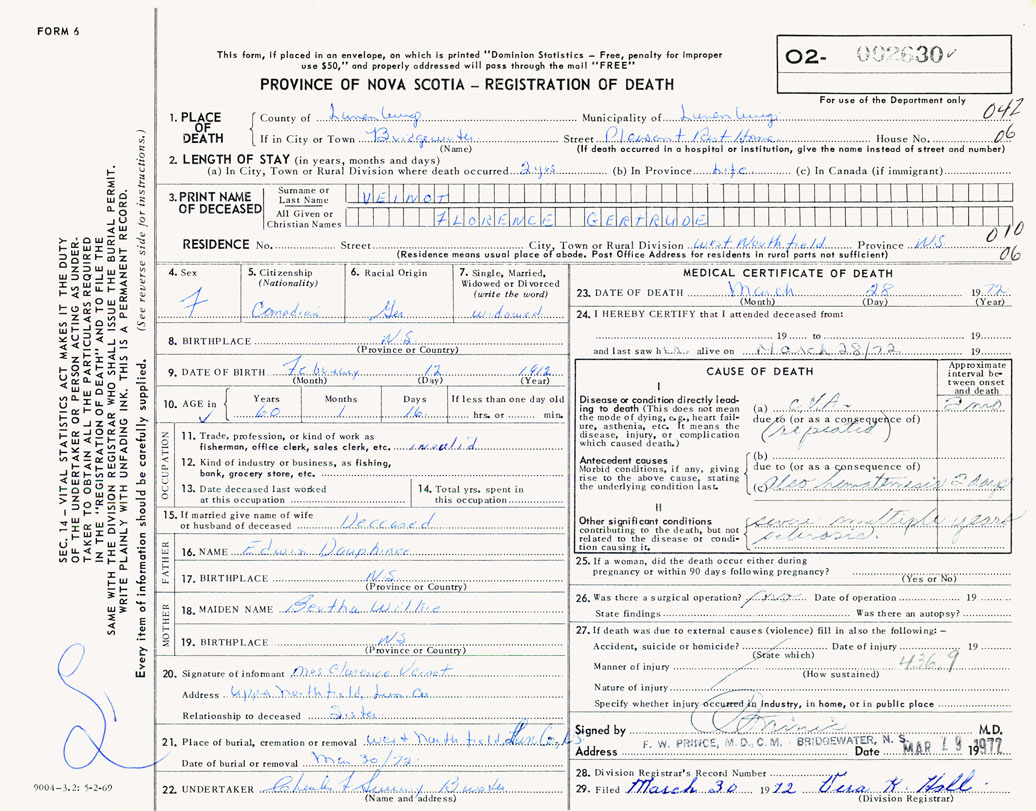 FORM 6
This form, if placed in an envelope, on which is printed "Dominion Statistics – Free, penalty for improper
use $50," and properly addressed will pass through the mail "FREE"
PROVINCE OF NOVA SCOTIA – REGISTRATION OF DEATH
O2- 002630
For use of the Department only
042
06
1. PLACE OF DEATH
County of Lunenburg Municipality of Lunenburg
If in City or Town Bridgewater Street Pleasant Rest Home House No.
(Name) (If death occurred in a hospital or institution, give the name instead of street and number)
2. LENGTH OF STAY (in years, months and days)
(a) In City, Town or Rural Division where death occurred 2 yrs (b) In Province Life (c) In Canada (if immigrant)
3. PRINT NAME OF DECEASED
Surname or Last Name VEINOT
All Given or Christian Names FLORENCE GERTRUDE
RESIDENCE No. Street City, Town or Rural Division West Northfield Province N.S.
(Residence means usual place of abode. Post Office Address for residents in rural parts not sufficient)
010
06
4. Sex F
5. Citizenship (Nationality) Canadian
6. Racial Origin Ger
7. Single, Married, Widowed or Divorced (write the word) widowed
8. BIRTHPLACE N.S.
(Province or Country)
9. DATE OF BIRTH February 12 1912
(Month) (Day) (Year)
10. AGE in Years 60 Months 1 Days 16 If less than one day old hrs. or min.
OCCUPATION
11. Trade, profession, or kind of work as
fisherman, office clerk, sales clerk, etc. invalid
12. Kind of industry or business, as fishing,
bank, grocery store, etc.
13. Date deceased last worked
at this occupation
14. Total yrs. spent in
this occupation
15. If married give name of wife
or husband of deceased Deceased
FATHER
16. NAME Edwin Dauphinee
17. BIRTHPLACE N.S.
(Province or Country)
MOTHER
18. MAIDEN NAME Bertha Wilkie
19. BIRTHPLACE N.S.
(Province or Country)
20. Signature of informant Mrs Clarence Veinot
Address Upper Northfield, Lun. Co
Relationship to deceased Sister
21. Place of burial, cremation or removal West Northfield Lun. Co., N.S.
Date of burial or removal Mar 30/72
22. UNDERTAKER Charles
(Name and address)
MEDICAL CERTIFICATE OF DEATH
23. DATE OF DEATH March 28 1972
(Month) (Day) (Year)
24. I HEREBY CERTIFY that I attended deceased from:
19 to 19
and last saw her alive on March 28/72 19
CAUSE OF DEATH
Approximate interval between onset and death
I
Disease or condition directly leading
to death (This does not mean
the mode of dying, e.g., heart failure,
asthenia, etc. It means the
disease, injury, or complication
which caused death.)
(a) CVA. 2 mo
due to (or as a consequence of)
(repeated)
Antecedent causes
Morbid conditions, if any, giving
rise to the above cause, stating
the underlying condition last.
(b)
due to (or as a consequence of)
(c) also hematemesis 2 days
II
Other significant conditions
contributing to the death, but not
related to the disease or condition
causing it.
severe multiple sclerosis. years
25. If a woman, did the death occur either during
pregnancy or within 90 days following pregnancy?
(Yes or No)
26. Was there a surgical operation? no Date of operation 19
State findings Was there an autopsy?
27. If death was due to external causes (violence) fill in also the following: –
Accident, suicide or homicide? Date of injury 19
(State which)
436.9
Manner of injury
(How sustained)
Nature of injury
Specify whether injury occurred in Industry, in home, or in public place
Signed by Prince M.D.
Address F. W. PRINCE, M.D., C.M. BRIDGEWATER, N. S. Date MAR 29 1972
28. Division Registrar's Record Number
29. Filed March 30 1972 Vera K. Hall
(Division Registrar)
SEC. 14 – VITAL STATISTICS ACT MAKES IT THE DUTY
OF THE UNDERTAKER OR PERSON ACTING AS UNDERTAKER
TO OBTAIN ALL THE PARTICULARS REQUIRED
IN THE "REGISTRATION OF DEATH" AND TO FILE THE
SAME WITH THE DIVISION REGISTRAR WHO SHALL ISSUE THE BURIAL PERMIT.
WRITE PLAINLY WITH UNFADING INK. THIS IS A PERMANENT RECORD.
Every item of information should be carefully supplied. (See reverse side for instructions.)
9004-3.2: 5-2-69